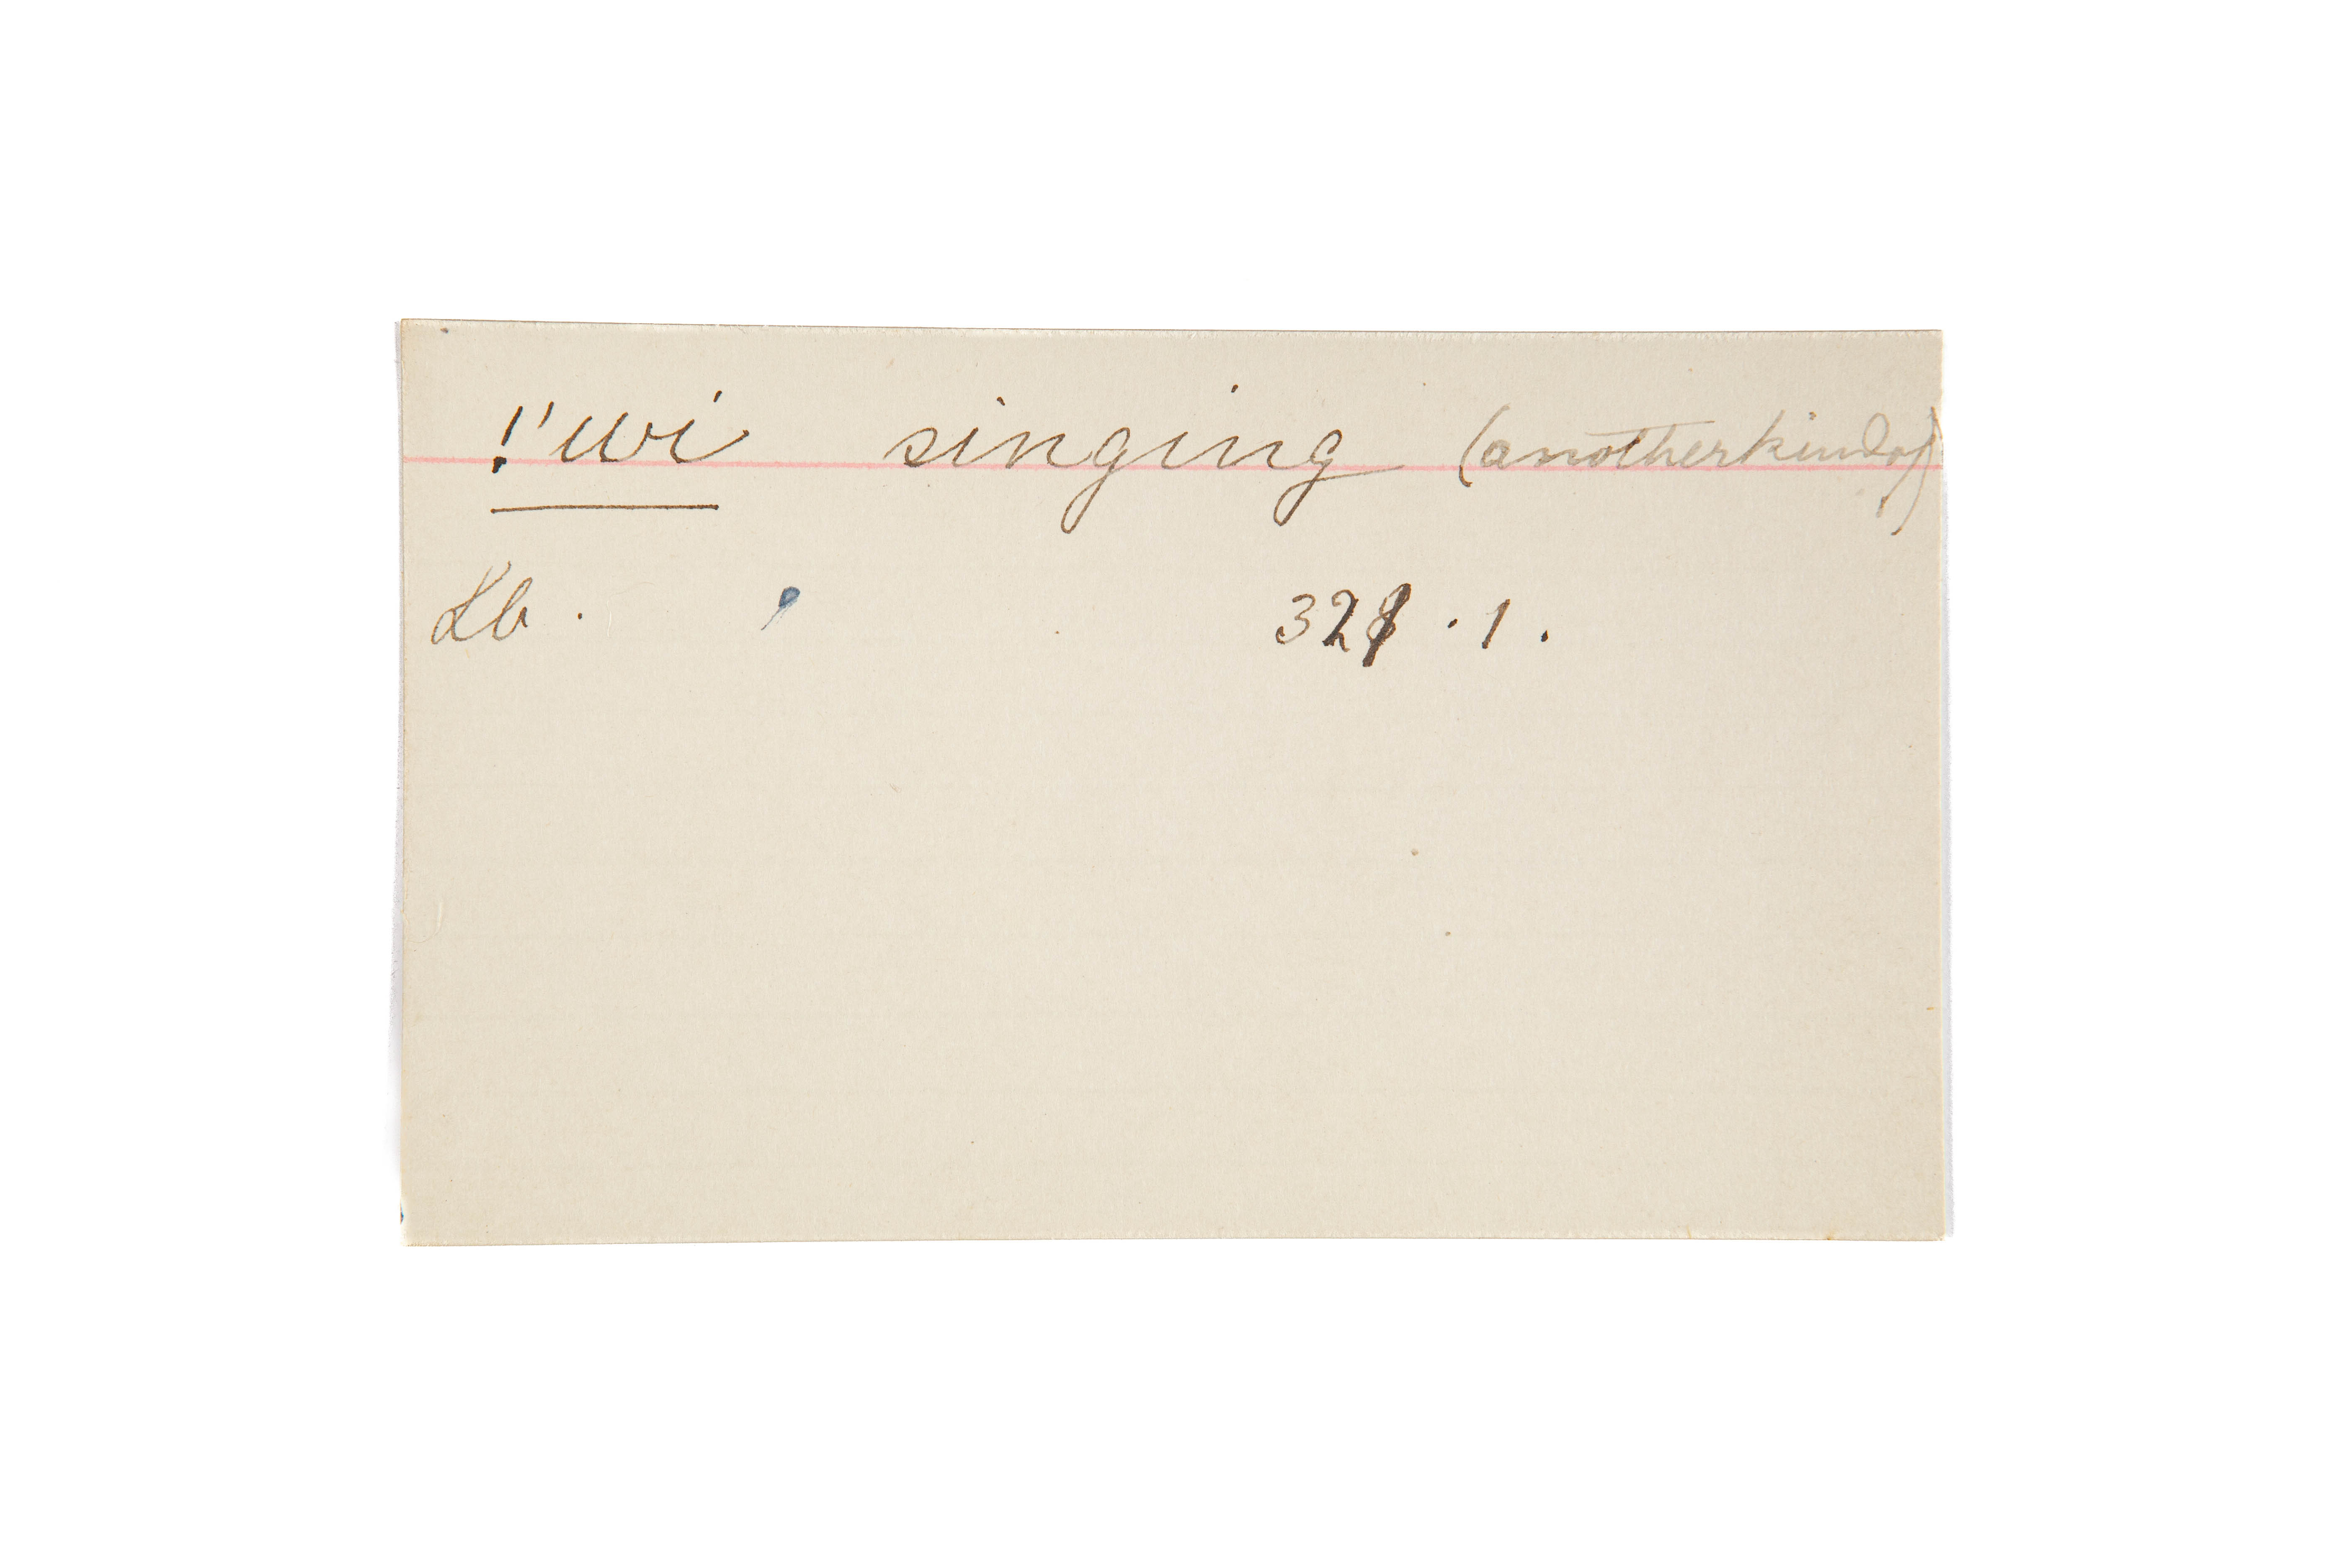 !'uvi singing (another kind of)
Lb. 321.1.